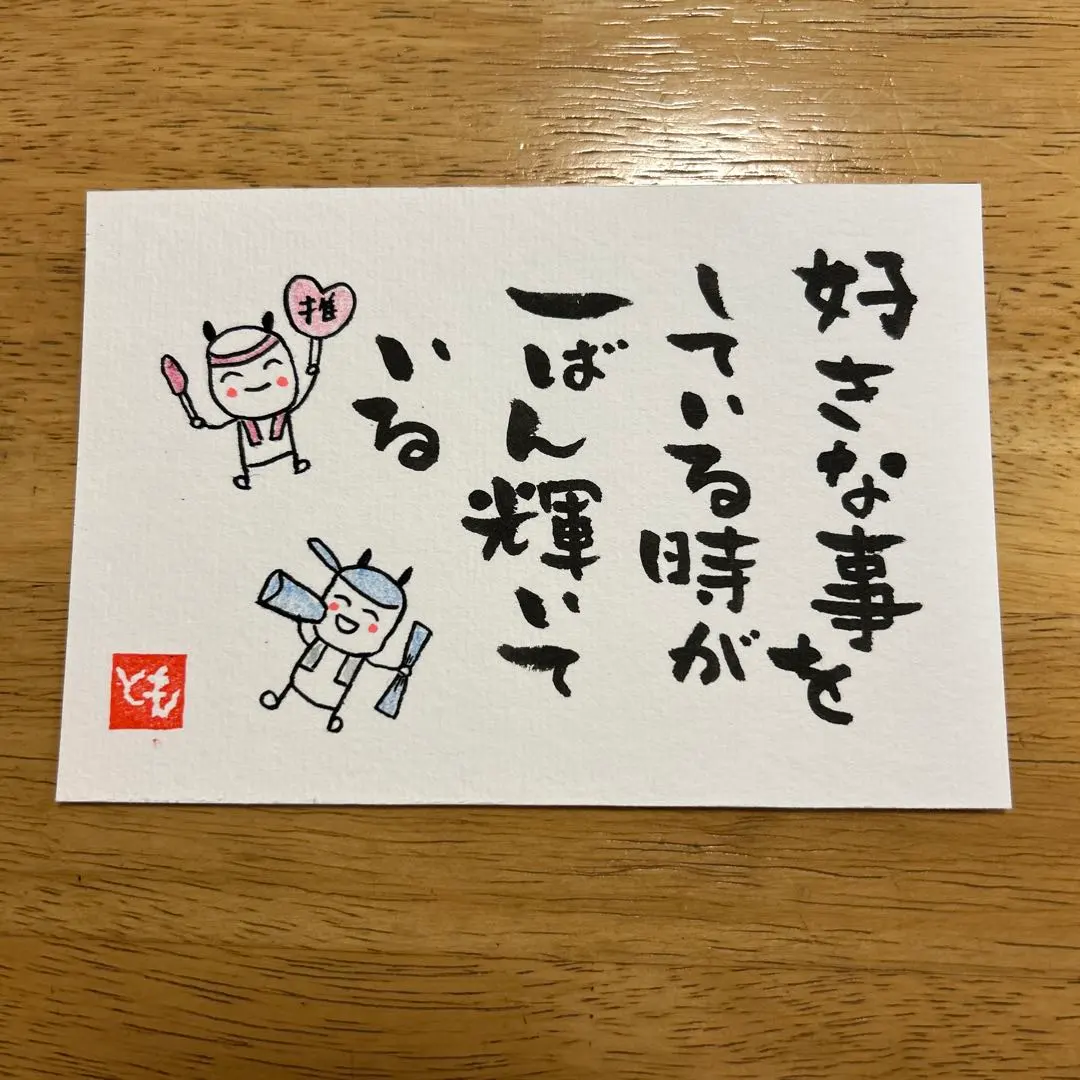 好きな事を
している時が
一ばん輝いて
いる
推
とも